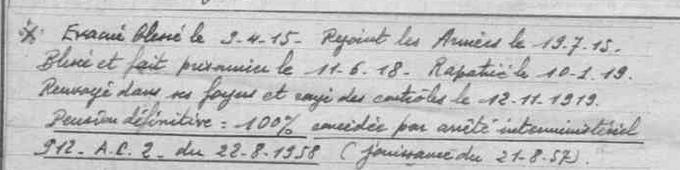 Evacué blessé le 9-4-15 - Rejoint les Armées le 19.7.15.
Blessé et fait prisonnier le 11-6.18 - Rapatrié le 10-1.19.
Renvoyé dans ses foyers et rayé des contrôles le 12.11.1919.
Pension définitive = 100% concédée par arrêté interministériel
912. A.C. 2. du 22-8-1958 ( jouissance du 21-8-57).